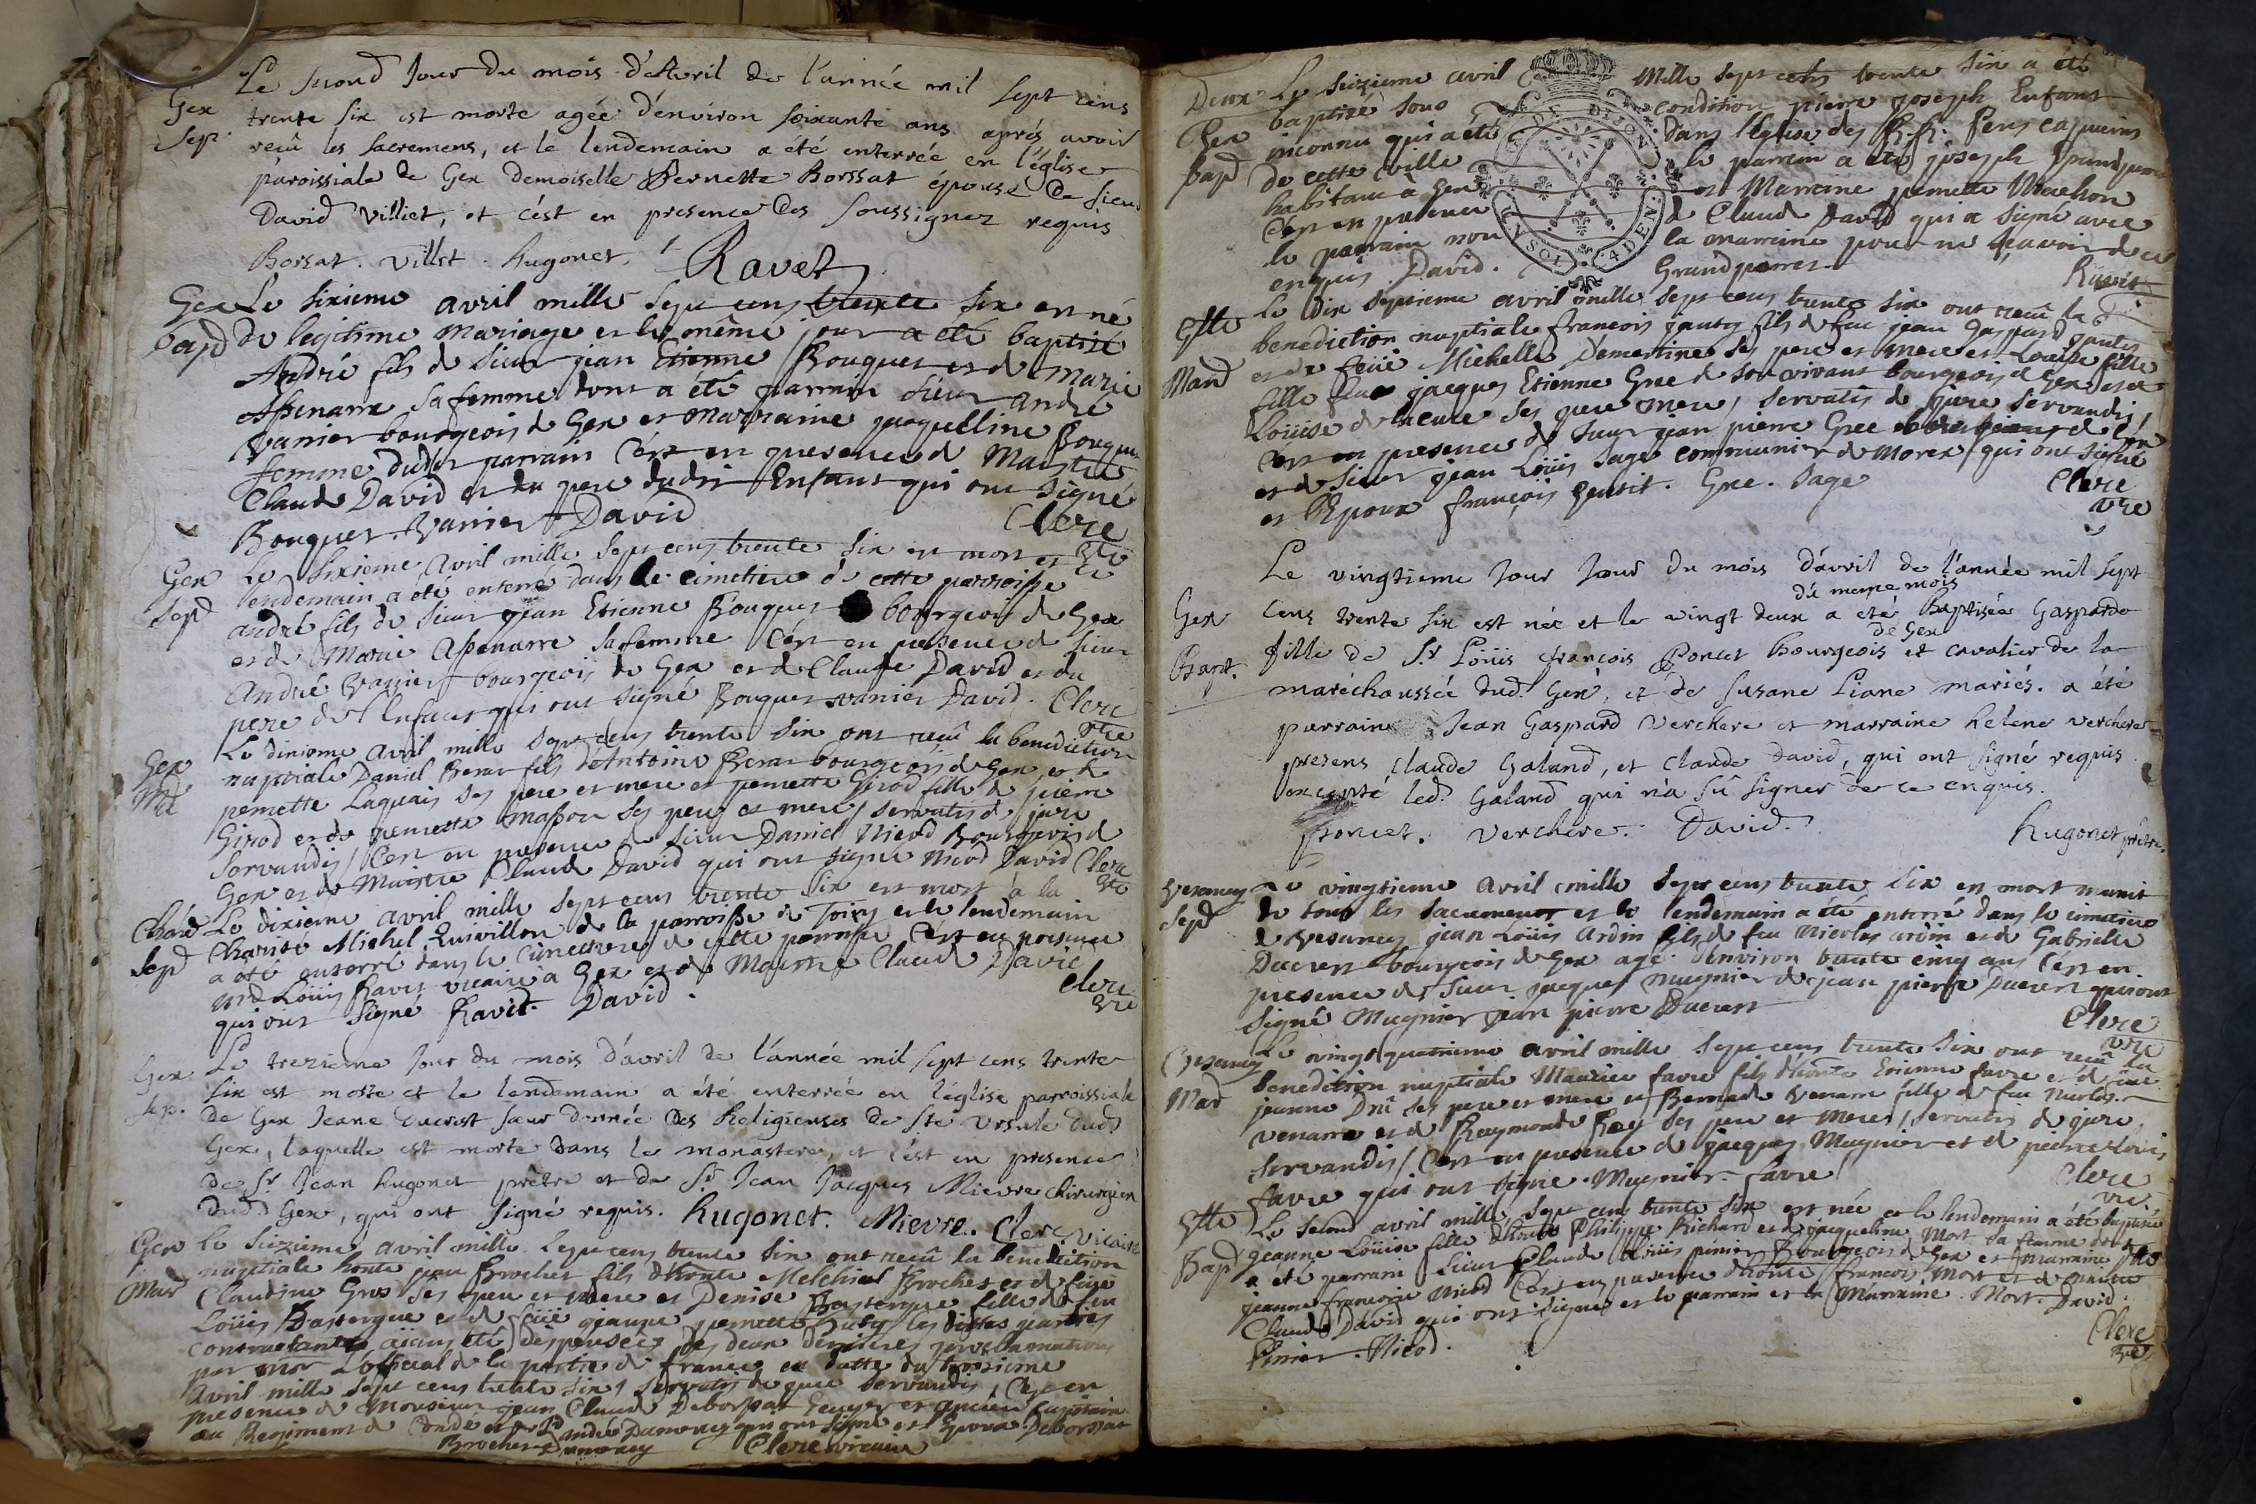 Le second Jour du mois d'Avril de l'année mil sept cens
Gex
Sep.
trente six est morte agée d'environ soixante ans aprés avoir
reçû les Sacremens, et le lendemain a été enterrée en l'église
paroissiale de Gex Demoiselle Pernette Borssat épouse de sieur
David Villiet, et c'est en presence des soussignez requis
Borsat. Villet. Hugonet. Ravet
Gex Le sixieme avril mille sept cens trente six est né
Bapd de legitime mariage et le même jour a été baptisé
André fils de sieur jean Etienne Bouquet et de Marie
sa femme dont a été parrain sieur André
Vanier bourgeois de Gex et marraine jacquelline Bouquet
femme dudit parrain C'est en presence de Maistre
Claude David et du pere dudit Enfant qui ont signé
Bouquet. Vanier David Clerc
vre
Gex Le sixieme avril mille sept cens trente six est mort et le
Sepd lendemain a été enterré dans le cimetiere de cette parroisse
andré fils de sieur jean Etienne Bouquet bourgeois de Gex
et de Marie sa femme C'est en presence de sieur
André Vanier bourgeois de Gex et de Claude David et du
pere de l'Enfant qui ont signé Bouquet Vanier David. Clerc
vre
Gex
Md
Le dixieme avril mille sept cens trente six ont reçû la benediction
nuptiale Daniel fils d'Antoine bourgeois de Gex et de
pernette Laquais ses pere et mere et pernette Girod fille de pierre
Girod et de pernette masson ses pere et mere / servatis de jure
servandis / C'est en presence de sieur Daniel Nicod Bourgeois de
Gex et de Maistre Claude David qui ont signé Nicod David Clerc
vre
Le dixieme avril mille sept cens trente six est mort à la
Sepd Charité Michel Quivillon de la parroisse de Toiry et le lendemain
a été enterré dans le cimetiere de cette parroisse C'est en presence
Mre Loüis Ravet vicaire à Gex et de Maistre Claude David
qui ont signé Ravet. David. Clerc
vre
Gex
Sep.
Le trezieme Jour du mois d'avril de l'année mil sept cens trente
six est morte et le lendemain a été enterrée en l'église parroissiale
de Gex Jeane Ducrest sœur donnée des Religieuses de Ste Ursule dud.
Gex, laquelle est morte dans le monastere, et c'est en presence
de Sr. Jean Hugonet prêtre et de Sr. Jean Jacques Mievre chirurgien
dud. Gex, qui ont signé requis. Hugonet. Mievre. Clerc vicaire
Gex Le seizieme avril mille sept cens trente six ont reçû la benediction
Mar nuptiale honte jean Brochet fils d'honte Melchior Brochet et de feüe
Claudine Gros ses pere et mere et Denise fille de feu
Loüis et de feüe jeanne pernette les dittes parties
contractantes aiant été dispensées des deux dernieres proclamations
par Mor L'official de la partie de france en datte du treizieme
avril mille sept cens trente six / servatis de jure servandis / C'est en
presence de Monsieur jean Claude Deborssat Ecuyer et ancien Capitaine
au Regiment de Condé et de Sr André Dumoncy qui ont signé et Epoux. Deborssat
Brochet Dumoncy Clerc vicaire
Deux Le seizieme avril Mille sept cens trente six a été
Gex
bapd
baptisé sous condition pierre joseph Enfant
inconnu qui a été dans l'Eglise des R.R. Peres capucins
de cette ville le parrain a été joseph Grandperret
habitant a Gex et Marraine pernette Machon
C'est en presence de Claude David qui a signé avec
le parrain non la marraine pour ne sçavoir de ce
enquis David. Grandperret Ravet
GENSDE DIJON
Mard
Le dix septieme avril mille sept cens trente six ont reçû la
benediction nuptiale françois fils de feu jean Gaspard
et de feüe Michelle Demartine ses pere et mere et Loüise fille
fille feu jacques Etienne Gree de son vivant bourgeois de Gex et de
Loüise ses pere mere / servatis de jure servandis /
C'est en presence de sieur jean pierre Gree bourgeois de Gex
et de sieur jean Loüis Sage communier de Morex qui ont signé
et l'Epoux françois. Gree. Sage Clerc
vre
Le vingtieme Jour Jour du mois d'avril de l'année mil sept
du meme mois
Gex
Bapt.
cens trente six est née et le vingt deux a eté Baptisée Gasparde
de Gex
fille de Sr. Loüis François Poncet Bourgeois et cavalier de la
maréchaussée dud. Gex, et de Susane Liane mariés. a été
parrain Jean Gaspard Verchere et marraine Helene Verchere
presens Claude Galand, et Claude David, qui ont signé requis
excepté led. Galand qui n'a sû signer de ce enquis.
Poncet. Verchere. David. Hugonet prêtre.
Vesancy
Sepd
Le vingtieme avril mille sept cens trente six est mort munit
de tous les sacremens et le lendemain a été enterré dans le cimetiere
de Vesancy jean Loüis Ardin fils de feu Nicolas ardin et de Gabrielle
Ducrest bourgeois de Gex agé d'environ trente cinq ans C'est en
presence de sieur jacques Mugnier de jean pierre Ducrest qui ont
signé Mugnier jean pierre Ducrest Clerc
vre
Vesancy
Mard
Le vingt quatrieme avril mille sept cens trente six ont reçû la
benediction nuptiale Maurice favre fils d'honte Etienne favre et de feüe
jeanne ses pere et mere et Bernarde Venarre fille de feu Nicolas
Venarre et de Raymonde Rey ses pere et meres / servatis de jure
servandis / C'est en presence de jacques Mugnier et de pierre Loüis
favre qui ont signé. Mugnier. favre Clerc
vre
Bapd
Le second avril mille sept cens trente six est née et le lendemain a été baptisée
jeanne Loüise fille d'honte Philippe Richard et de jacqueline Mort sa femme dont
a été parrain sieur Claude Loüis pinier Bourgeois de Gex et marraine Dlle
jeanne françoise Nicod C'est en presence d'honte françois Mort et de Maistre
Claude David qui ont signé et le parrain et la Marraine. Mort. David.
Pinier. Nicod. Clerc
vre